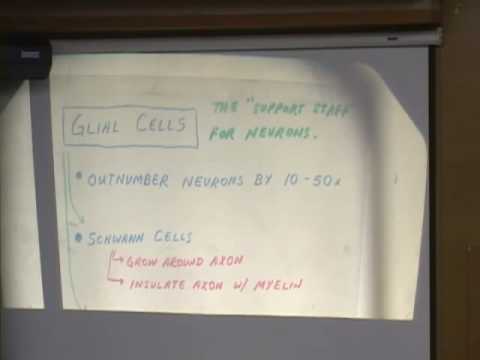 GLIAL CELLS
THE "SUPPORT STAFF
FOR NEURONS.
• OUTNUMBER NEURONS BY 10-50x
• SCHWANN CELLS
→ GROW AROUND AXON
→ INSULATE AXON W/ MYELIN